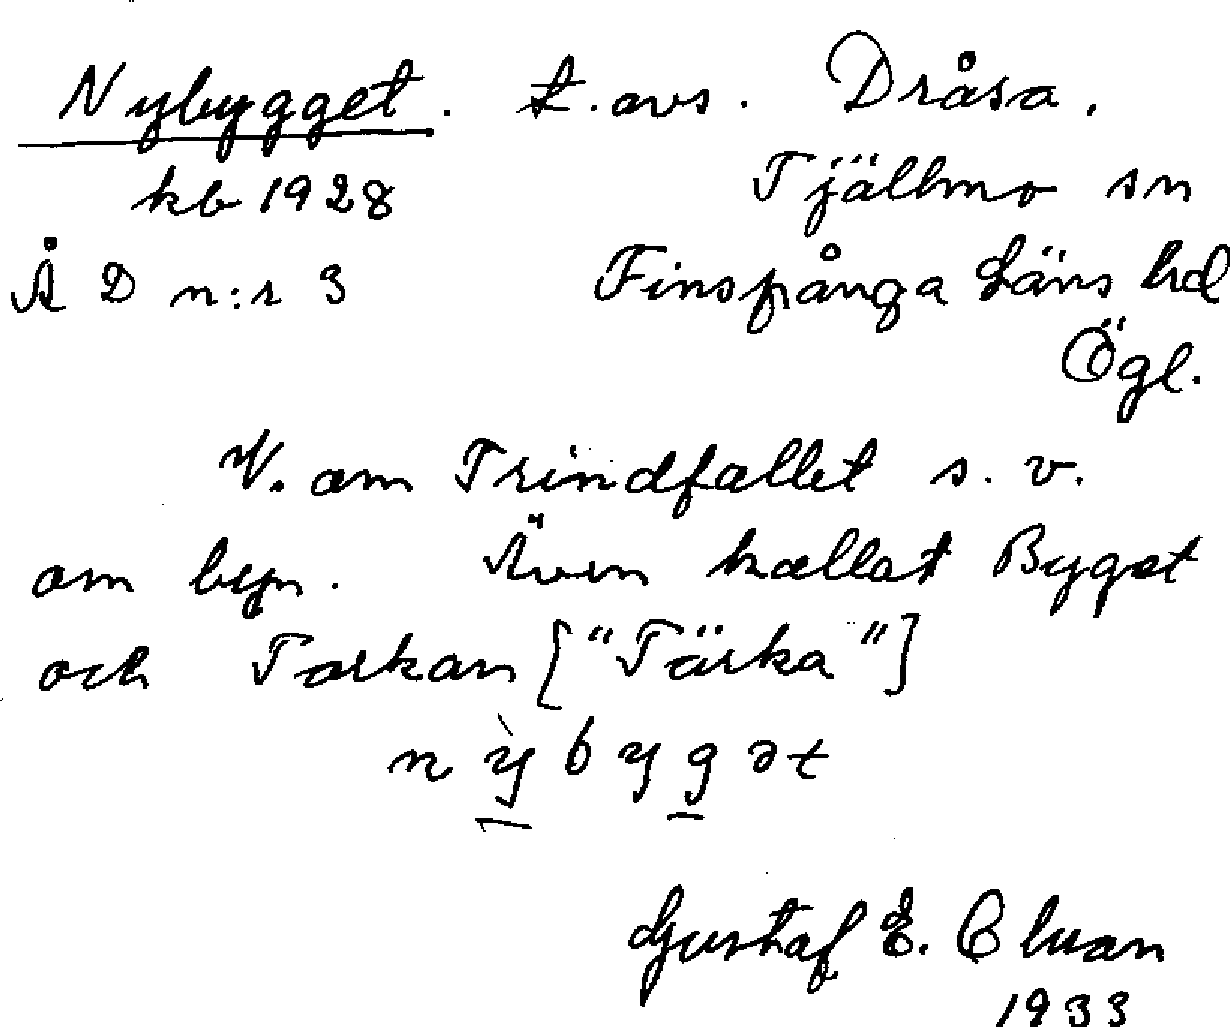 Nybygget. t. avs. Dråsa.
kb 1928 Tjällmo sn
Å D n:r 3 Finspånga Läns hd
Ögl.
V. om Trindfallet s. v.
om byn. Även kallat Bygget
och Torkan ["Tärka"]
nỳbygət
Gustaf E. Cluan
1933